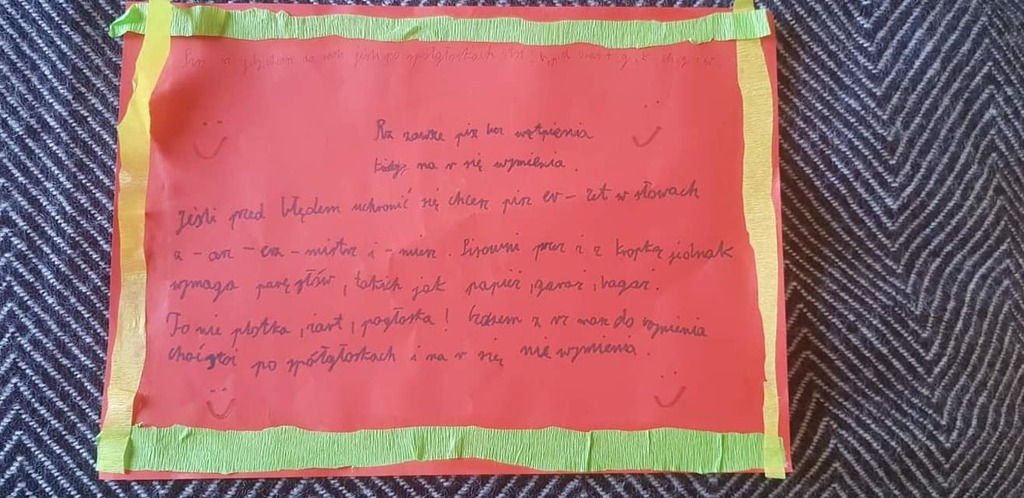 po spółgłoskach
Rz zawsze pisz bez wątpienia
kiedy na r się wymienia.
Jeśli przed błędem uchronić się chcesz pisz er-zet w słowach
z - arz - erz - mistrz i - mierz. Pisowni przez ż z kropką jednak
wymaga parę słów, takich jak papież, garaż, bagaż.
To nie plotka, żart, pogłoska! Czasem z rz masz do czynienia
choć stoi po spółgłoskach i na r się nie wymienia.